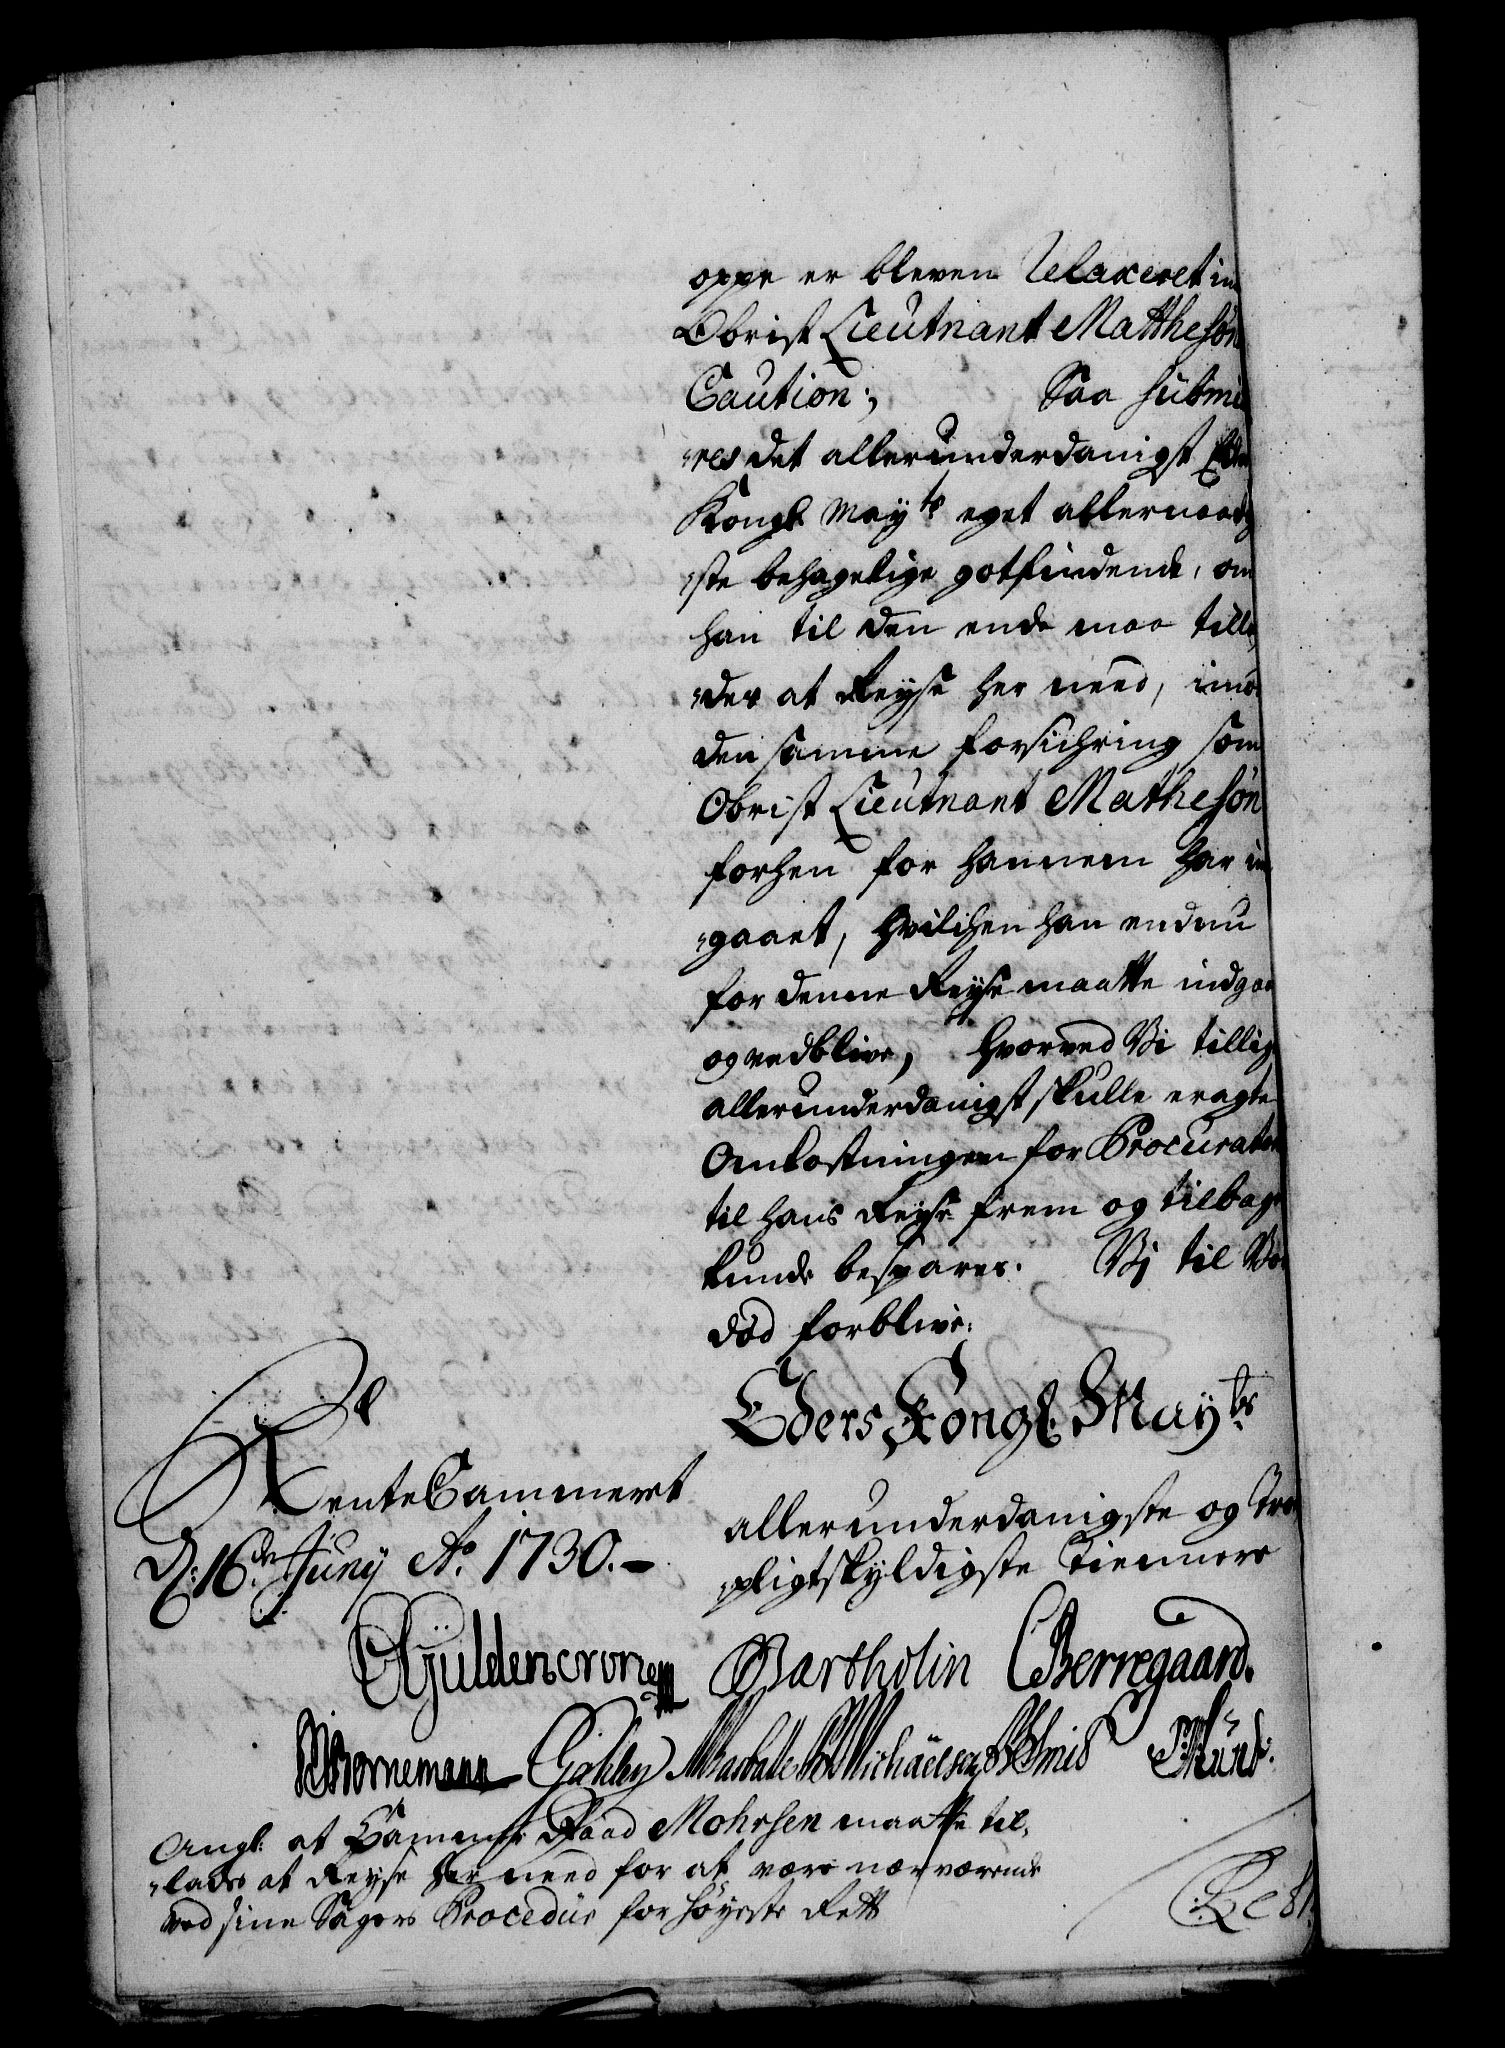 oppe er bleven Relaxeret im
Obrist Lieutnant Matthesøn
Caution;, Saa submi
„res det allerunderdanigst Eder
Kongl. May.ts eget allernaadig
„ste behagelige gotfindende, om
han til den ende maa tilla
„des at Reyse her need, imod
den samme forsichring som
Obrist Lieutnant Mathesøn
forhen for hannem har in
„gaaet, hvilchen han endnu
for denne Reyse maatte indgaa
og vedblive, hvorved Vi tillige
allerunderdanigst skulle eragte
Omkostningen for Procurator
til hans Reyse frem og tilbage
kunde bespares. Vi til Vor
død forblive.
Eders Kongl. May.ts
RenteCammeret
D: 16.de Juny A.o 1730.–
allerunderdanigste og Troe
„pligtskyldigste Tiennere
CGüldencrone Bartholin CBerregaard.
Bornemann Michaëlsen Smid
Ang.l at Cammer Raad Mohrsen maatte til„
„lades at Reyse her need for at være nærværende
ved sine Sagers Procedür for Høyeste Rett